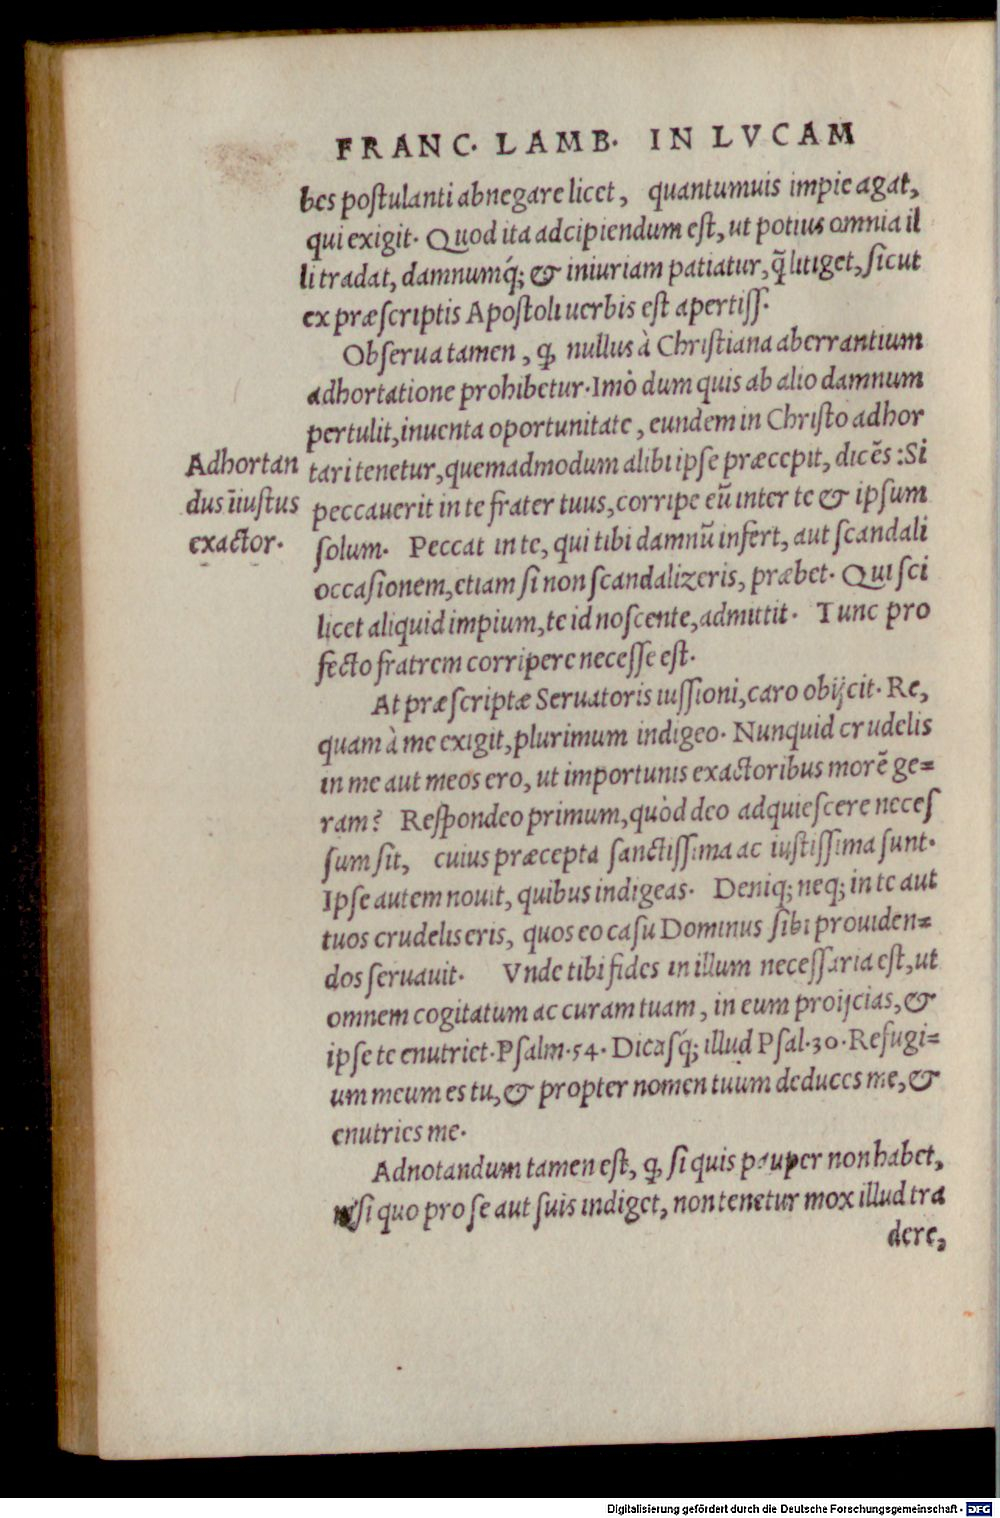 FRANC. LAMB. IN LVCAM
bes postulanti abnegare licet, quantumuis impie agat,
qui exigit. Quod ita adcipiendum est, ut potius omnia il
li tradat, damnumq́; & iniuriam patiatur, q̃ litiget, sicut
ex præscriptis Apostoli uerbis est apertiss.
Obserua tamen, ꝙ nullus à Christiana aberrantium
adhortatione prohibetur. Imò dum quis ab alio damnum
pertulit, inuenta oportunitate, eundem in Christo adhor
Adhortan
dus īiustus
exactor.
tari tenetur, quemadmodum alibi ipse præcepit, dicẽs: Si
peccauerit in te frater tuus, corripe eũ inter te & ipsum
solum. Peccat in te, qui tibi damnũ infert, aut scandali
occasionem, etiam si non scandalizeris, præbet. Qui sci
licet aliquid impium, te id noscente, admittit. Tunc pro
fecto fratrem corripere necesse est.
At præscriptæ Seruatoris iussioni, caro obijcit. Re,
quam à me exigit, plurimum indigeo. Nunquid crudelis
in me aut meos ero, ut importunis exactoribus morẽ ge=
ram? Respondeo primum, quòd deo adquiescere neces
sum sit, cuius præcepta sanctissima ac iustissima sunt.
Ipse autem nouit, quibus indigeas. Deniq; neq; in te aut
tuos crudelis eris, quos eo casu Dominus sibi prouiden=
dos seruauit. Vnde tibi fides in illum necessaria est, ut
omnem cogitatum ac curam tuam, in eum proijcias, &
ipse te enutriet. Psalm. 54. Dicasq́; illud Psal. 30. Refugi=
um meum es tu, & propter nomen tuum deduces me, &
enutries me.
Adnotandum tamen est, ꝙ si quis pauper non habet,
nisi quo pro se aut suis indiget, non tenetur mox illud tra
dere,
Digitalisierung gefördert durch die Deutsche Forschungsgemeinschaft - DFG